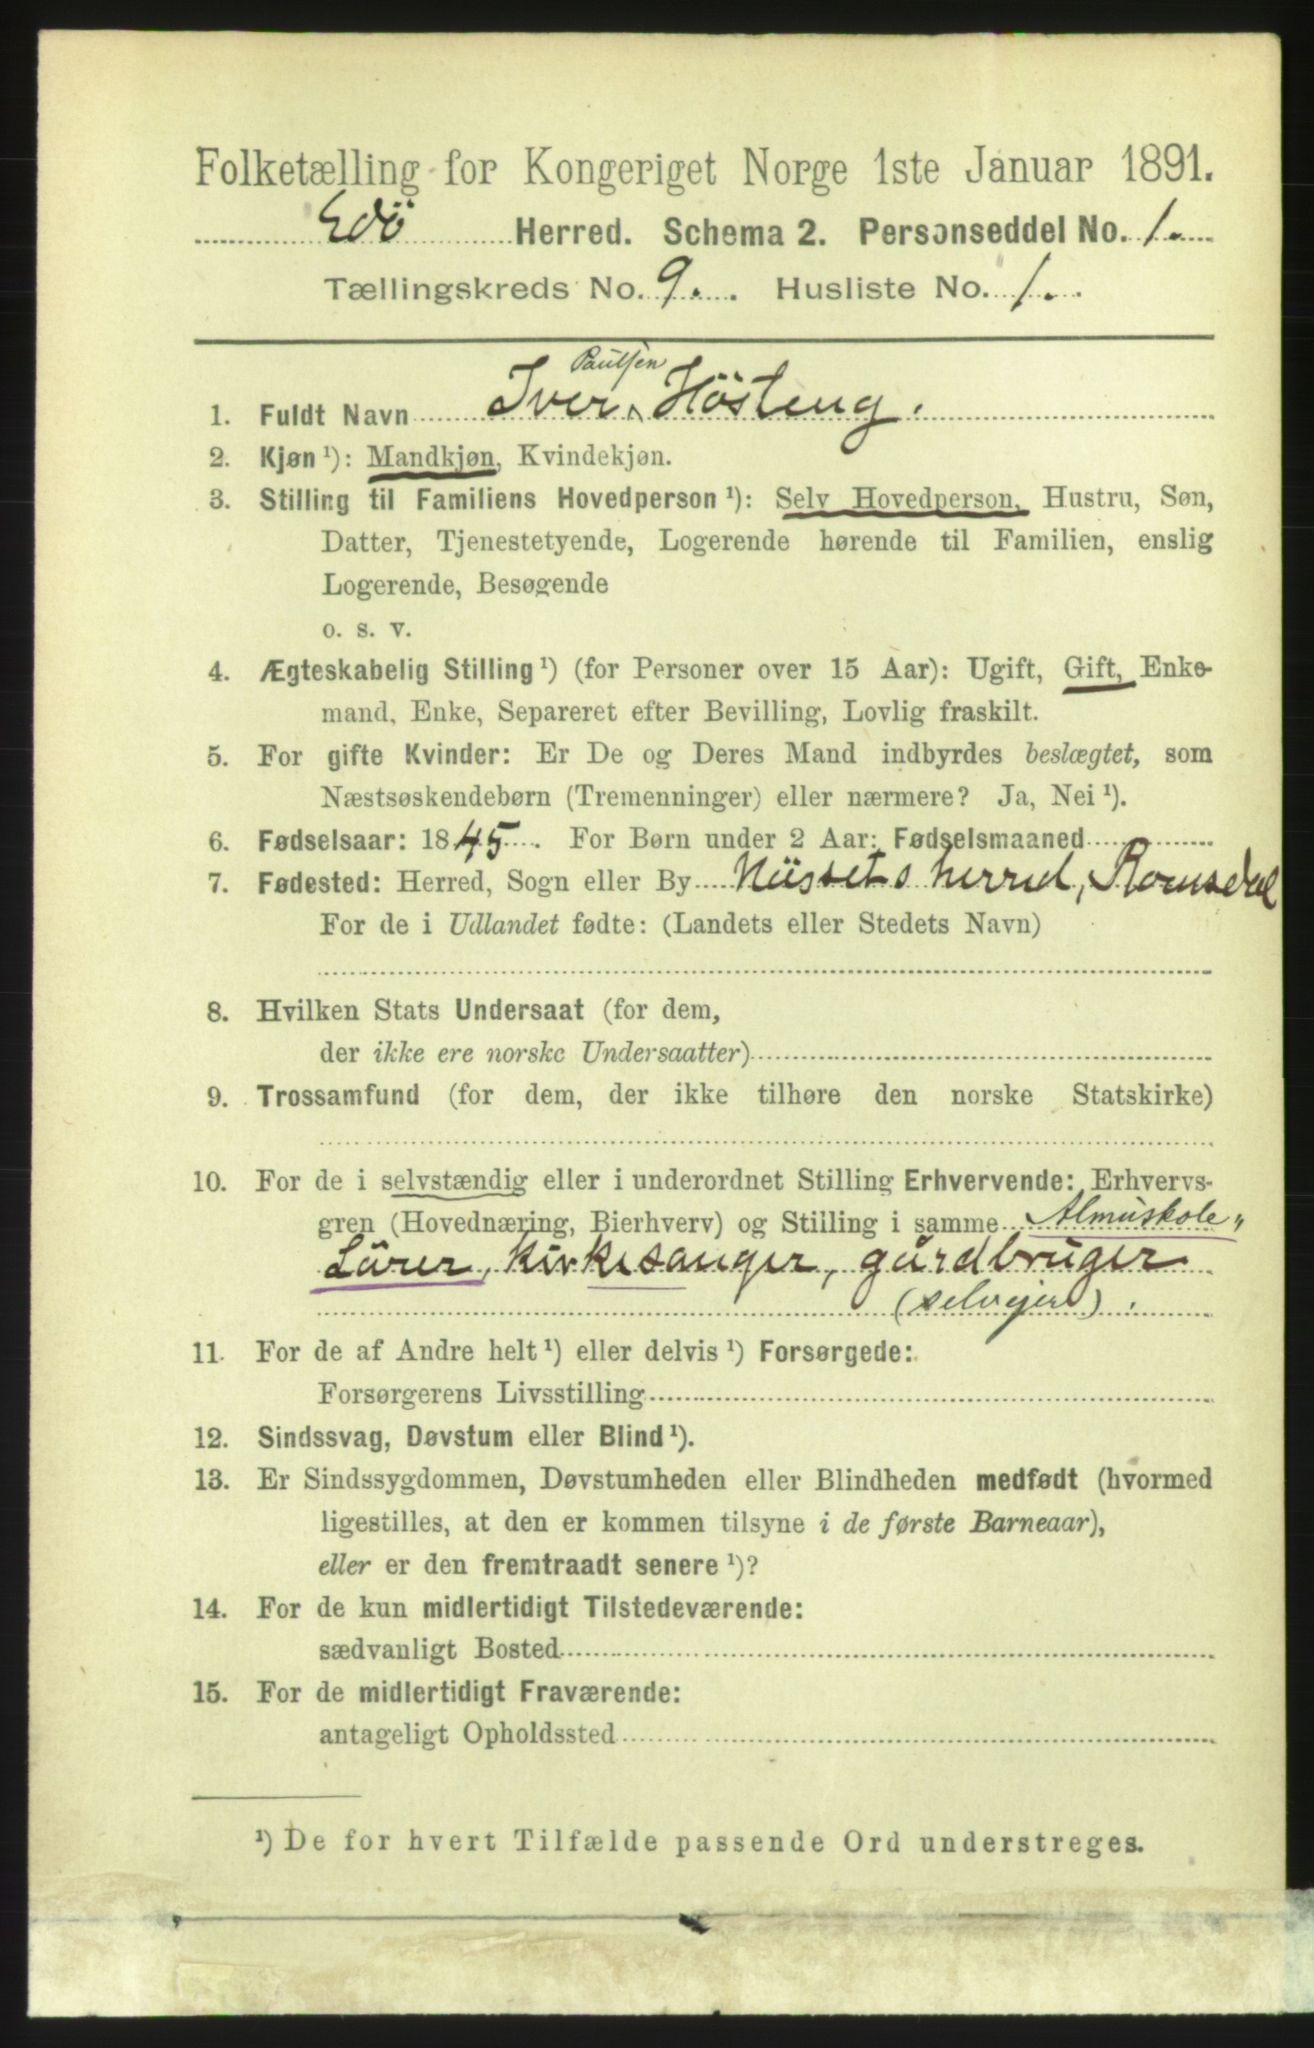 Folketælling for Kongeriget Norge 1ste Januar 1891.
Edö Herred. Schema 2. Personseddel No. 1.
Tællingskreds No. 9. Husliste No. 1.
Paulsen
1. Fuldt Navn Iver ^ Hösteng.
2. Kjøn ¹): Mandkjøn, Kvindekjøn.
3. Stilling til Familiens Hovedperson ¹): Selv Hovedperson, Hustru, Søn,
Datter, Tjenestetyende, Logerende hørende til Familien, enslig
Logerende, Besøgende
o. s. v.
4. Ægteskabelig Stilling ¹) (for Personer over 15 Aar): Ugift, Gift, Enke-
mand, Enke, Separeret efter Bevilling, Lovlig fraskilt.
5. For gifte Kvinder: Er De og Deres Mand indbyrdes beslægtet, som
Næstsøskendebørn (Tremenninger) eller nærmere? Ja, Nei ¹).
6. Fødselsaar: 1845. For Børn under 2 Aar: Fødselsmaaned
7. Fødested: Herred, Sogn eller By Nüssets herred, Romsdal
For de i Udlandet fødte: (Landets eller Stedets Navn)
8. Hvilken Stats Undersaat (for dem,
der ikke ere norske Undersaatter)
9. Trossamfund (for dem, der ikke tilhøre den norske Statskirke)
10. For de i selvstændig eller i underordnet Stilling Erhvervende: Erhvervs-
gren (Hovednæring, Bierhverv) og Stilling i samme Almüskole„
Lärer, kirkesanger, gårdbrüger
(selveier).
11. For de af Andre helt ¹) eller delvis ¹) Forsørgede:
Forsørgerens Livsstilling
12. Sindssvag, Døvstum eller Blind ¹).
13. Er Sindssygdommen, Døvstumheden eller Blindheden medfødt (hvormed
ligestilles, at den er kommen tilsyne i de første Barneaar),
eller er den fremtraadt senere ¹)?
14. For de kun midlertidigt Tilstedeværende:
sædvanligt Bosted
15. For de midlertidigt Fraværende:
antageligt Opholdssted
¹) De for hvert Tilfælde passende Ord understreges.